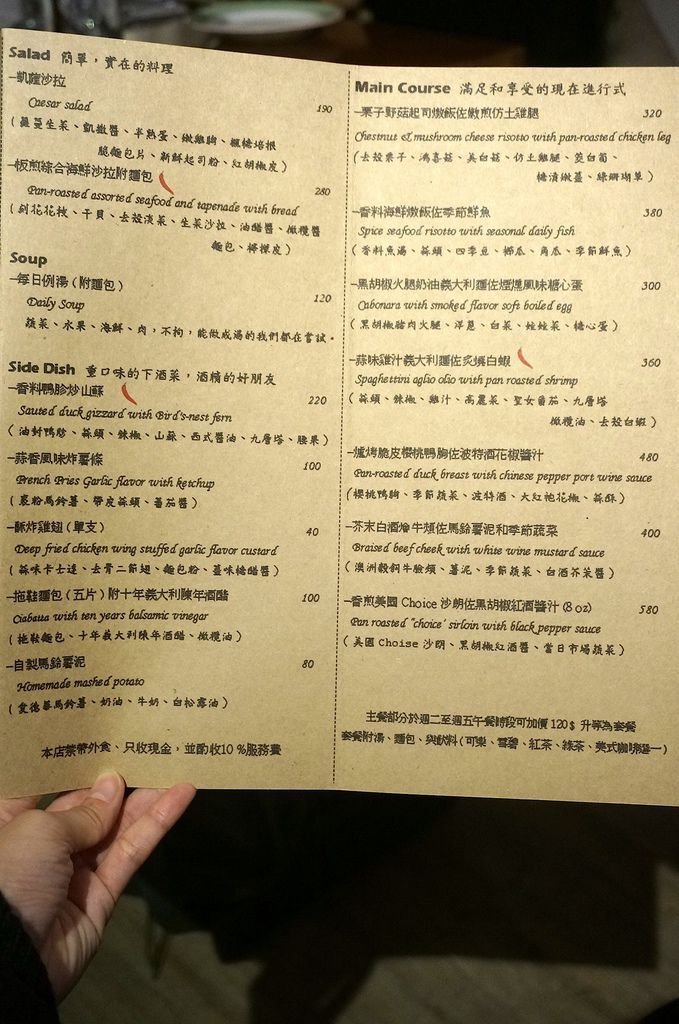 Salad 簡單，實在的料理
–凱薩沙拉
Caesar salad 190
（蘿蔓生菜、凱撒醬、半熟蛋、嫩雞胸、楓糖培根
脆麵包片、新鮮起司粉、紅胡椒皮）
–板煎綜合海鮮沙拉附麵包
Pan-roasted assorted seafood and tapenade with bread 280
（刻花花枝、干貝、去殼淡菜、生菜沙拉、油醋醬、橄欖醬
麵包、檸檬皮）
Soup
–每日例湯（附麵包）
Daily Soup 120
蔬菜、水果、海鮮、肉，不拘，能做成湯的我們都在嘗試。
Side Dish 重口味的下酒菜，酒精的好朋友
–香料鴨胗炒山蘇 220
Sauted duck gizzard with Bird's-nest fern
（油封鴨胗、蒜頭、辣椒、山蘇、西式醬油、九層塔、腰果）
–蒜香風味炸薯條 100
French Fries Garlic flavor with ketchup
（裹粉馬鈴薯、帶皮蒜頭、番茄醬）
–酥炸雞翅（單支） 40
Deep fried chicken wing stuffed garlic flavor custard
（蒜味卡士達、去骨二節翅、麵包粉、薑味糖醋醬）
–拖鞋麵包（五片）附十年義大利陳年酒醋 100
Ciabaua with ten years balsamic vinegar
（拖鞋麵包、十年義大利陳年酒醋、橄欖油）
–自製馬鈴薯泥 80
Homemade mashed potato
（愛德華馬鈴薯、奶油、牛奶、白松露油）
本店禁帶外食、只收現金，並酌收10 %服務費
Main Course 滿足和享受的現在進行式
–栗子野菇起司燉飯佐嫩煎仿土雞腿 320
Chestnut & mushroom cheese risotto with pan-roasted chicken leg
（去殼栗子、鴻喜菇、美白菇、仿土雞腿、茭白筍、
糖漬嫩薑、綠珊瑚草）
–香料海鮮燉飯佐季節鮮魚 380
Spice seafood risotto with seasonal daily fish
（香料魚湯、蒜頭、四季豆、櫛瓜、角瓜、季節鮮魚）
–黑胡椒火腿奶油義大利麵佐煙燻風味糖心蛋 300
Cabonara with smoked flavor soft boiled egg
（黑胡椒豬肉火腿、洋蔥、白菜、娃娃菜、糖心蛋）
–蒜味雞汁義大利麵佐炙燒白蝦 360
Spaghettini aglio olio with pan roasted shrimp
（蒜頭、辣椒、雞汁、高麗菜、聖女番茄、九層塔
橄欖油、去殼白蝦）
–爐烤脆皮櫻桃鴨胸佐波特酒花椒醬汁 480
Pan-roasted duck breast with chinese pepper port wine sauce
（櫻桃鴨胸、季節蔬菜、波特酒、大紅袍花椒、蒜酥）
–芥末白酒燴牛頰佐馬鈴薯泥和季節蔬菜 400
Braised beef cheek with white wine mustard sauce
（澳洲穀飼牛臉頰、薯泥、季節蔬菜、白酒芥茉醬）
–香煎美國 Choice 沙朗佐黑胡椒紅酒醬汁 (8 oz) 580
Pan roasted "choice" sirloin with black pepper sauce
（美國 Choise 沙朗、黑胡椒紅酒醬、當日市場蔬菜）
主餐部分於週二至週五午餐時段可加價 120$ 升等為套餐
套餐附湯、麵包、與飲料(可樂、雪碧、紅茶、綠茶、美式咖啡擇一)